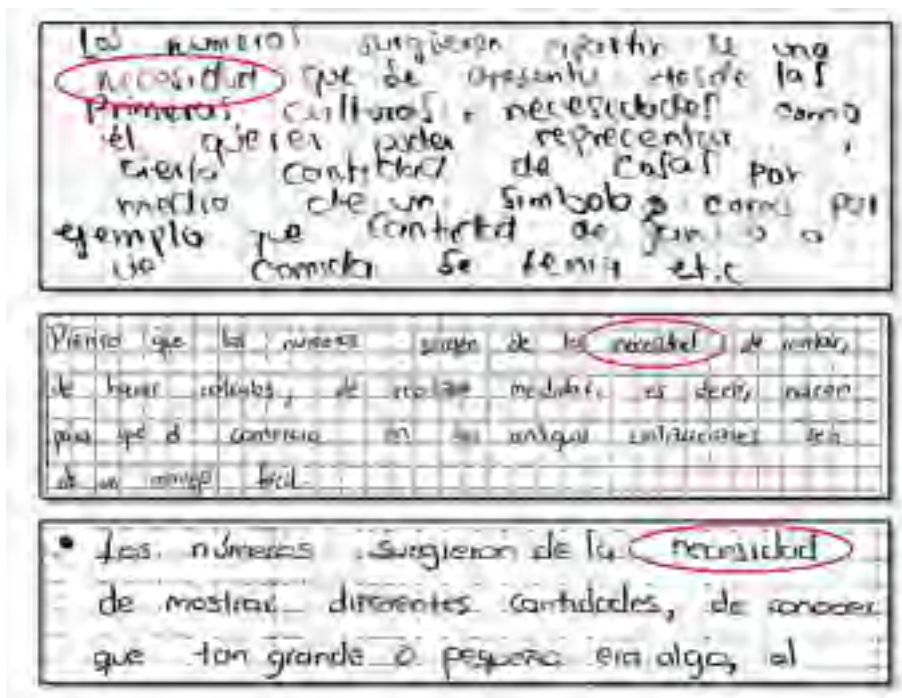 Los numeros surgieron apartir de una
necesidad que se presento desde las
Primeras culturas, necesidades como
el querer poder reprecentar
cierta cantidad de cosas por
medio de un simbolo como por
ejemplo que cantidad de
comida se tenia etc
Pienso que los números surgen de la necesidad de contar,
de hacer cálculos, de realizar medidas, es decir, nacen
para que el comercio en las antiguas civilizaciones sea
de un manejo fácil.
• Los números surgieron de la necesidad
de mostrar diferentes cantidades, de conocer
que tan grande o pequeña era algo, al